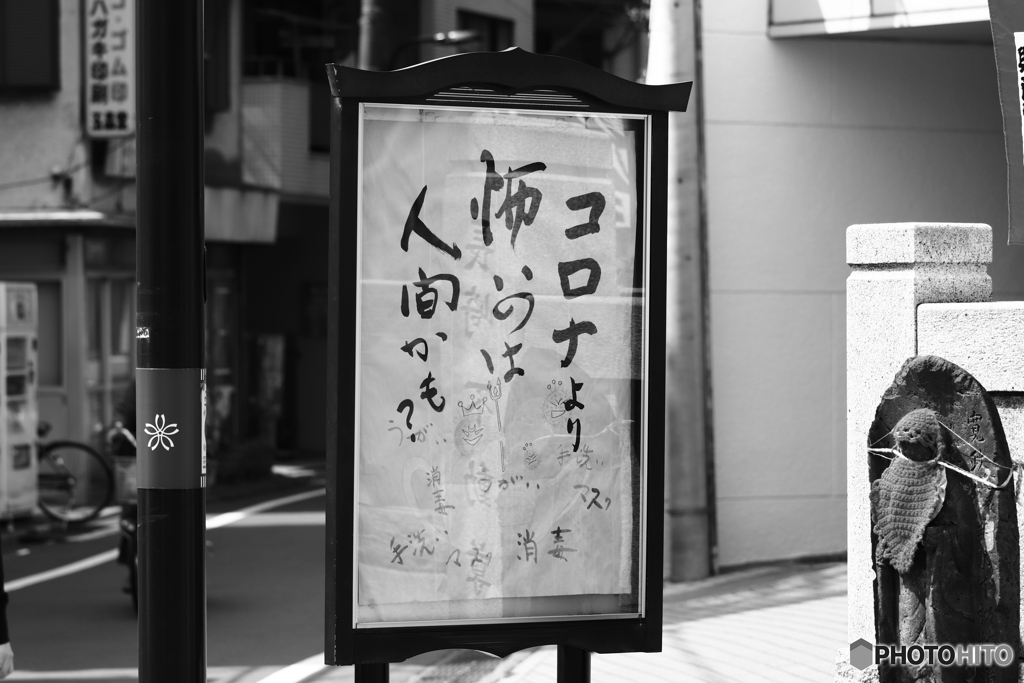 コロナより
怖いのは
人間かも?
うがい
消毒
うがい
手洗い
マスク
手洗い
マスク
消毒
ゴム印
ハガキ印刷
PHOTOHITO